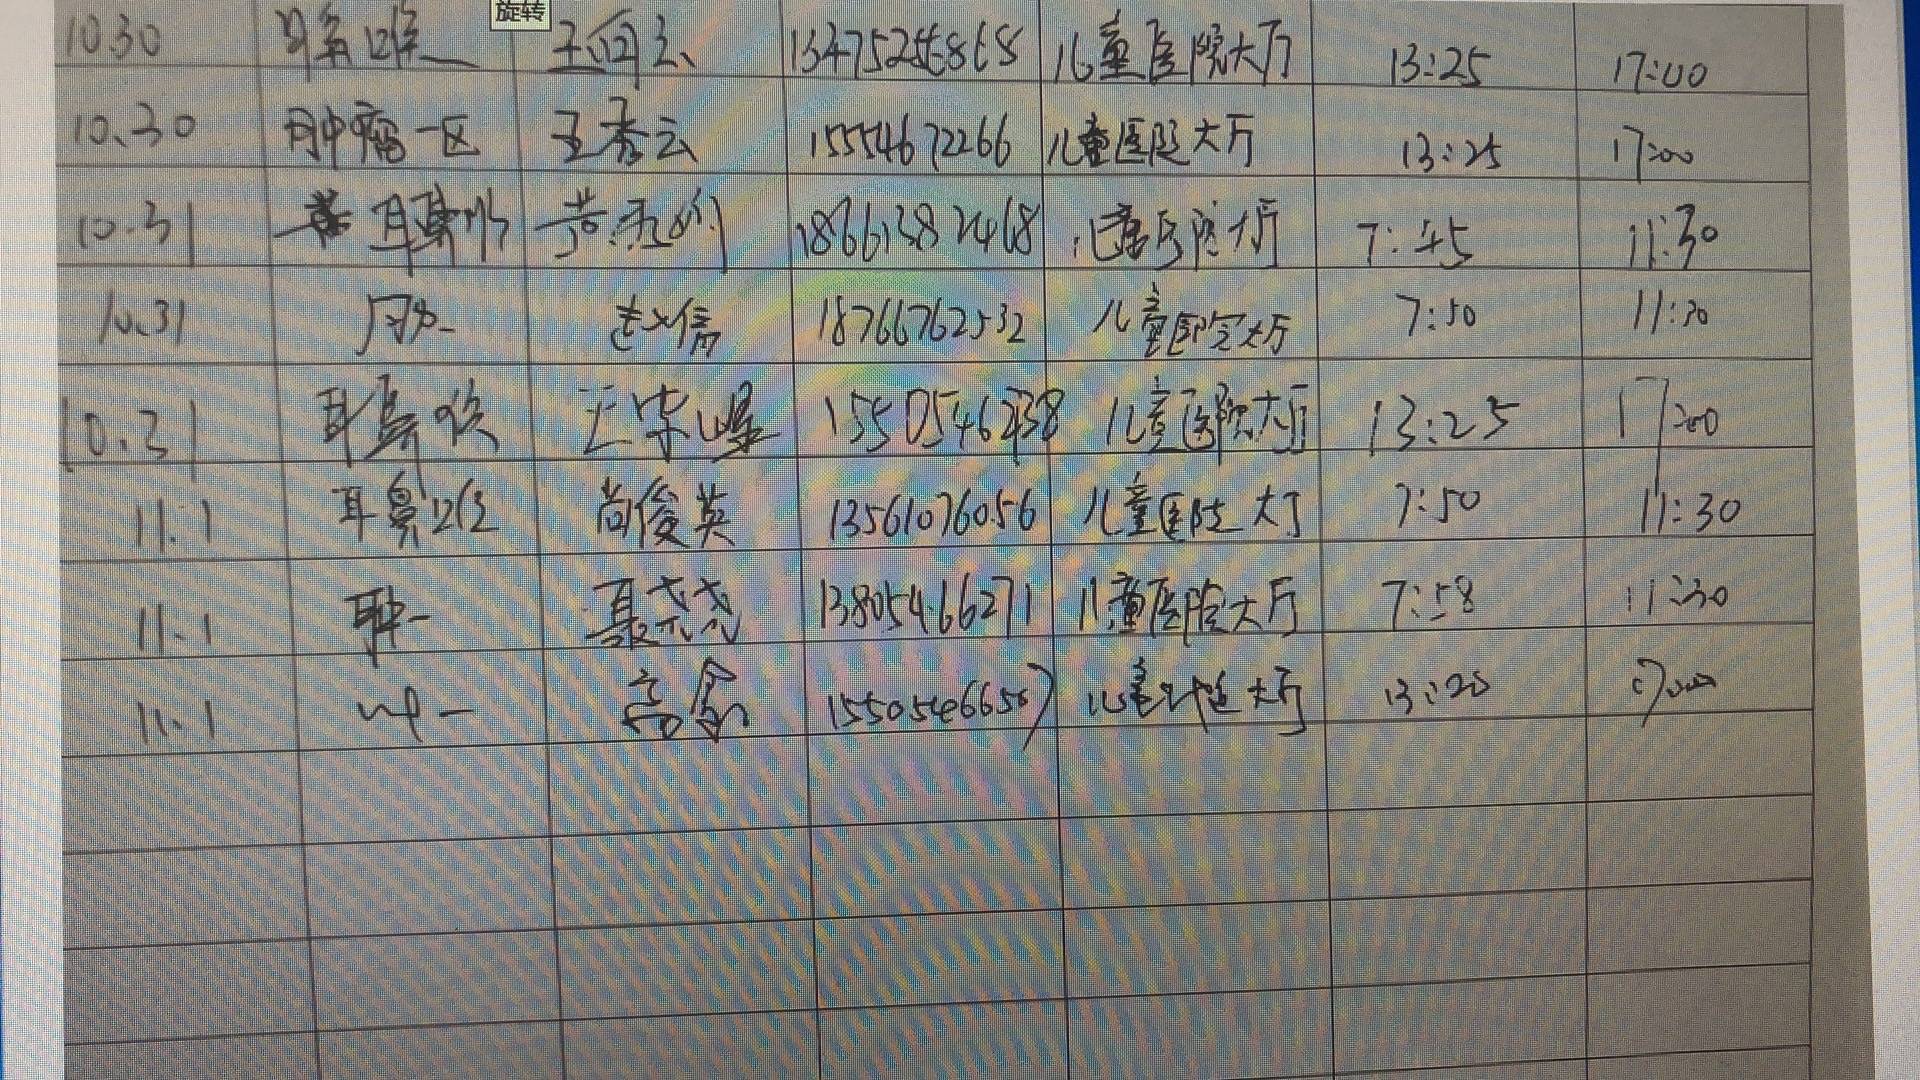 旋转
10.30 耳鼻喉 13475256868 儿童医院大厅 13:25 17:00
10.30 肿瘤一区 王秀云 15554672266 儿童医院大厅 13:25 17:00
10.31 耳鼻喉 18661382468 儿童医院大厅 7:45 11:30
10.31 赵倩 18766762532 儿童医院大厅 7:50 11:30
10.31 耳鼻喉 1550546238 儿童医院大厅 13:25 17:00
11.1 耳鼻喉 尚俊英 13561076056 儿童医院大厅 7:50 11:30
11.1 肿一 聂 13805466271 儿童医院大厅 7:58 11:30
11.1 肿一 高 儿童医院大厅 13:20 17:00